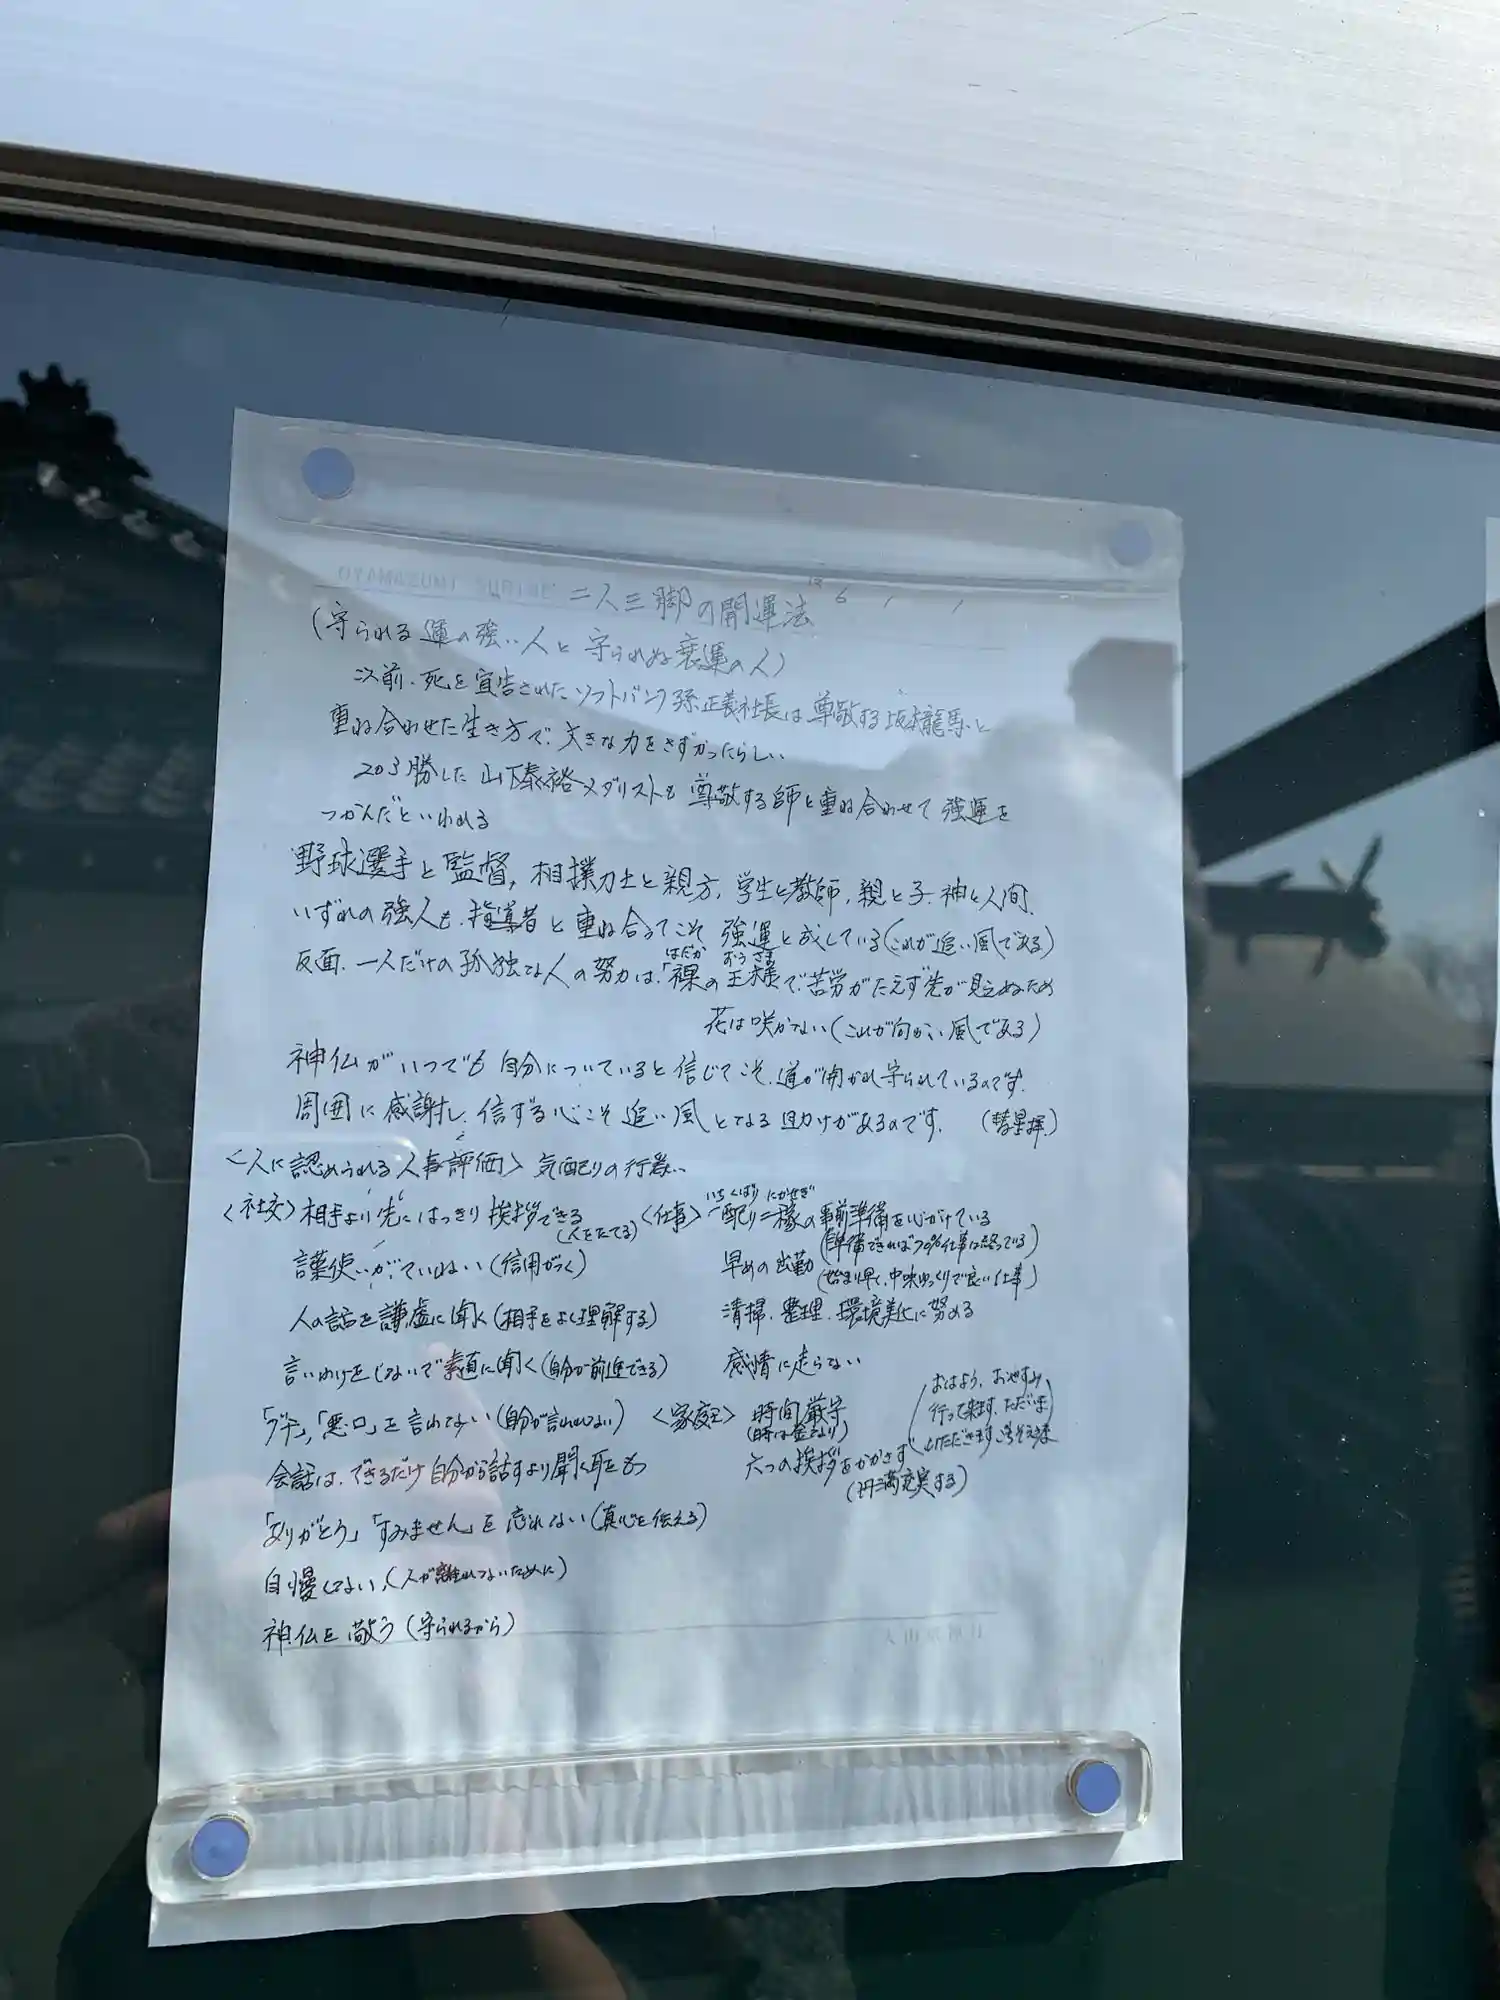 OYAMAZUMI SHRINE
二人三脚の開運法
6 1 1
(守られる運の強い人と守られぬ衰運の人)
以前、死を宣告されたソフトバンク孫正義社長は尊敬する坂本龍馬と
重ね合わせた生き方で、大きな力をさずかったらしい
203勝した山下泰裕メダリストも尊敬する師と重ね合わせて強運を
つかんだといわれる
野球選手と監督,相撲力士と親方,学生と教師,親と子,神と人間,
いずれの強人も、指導者と重ね合ってこそ強運と成している(これが追い風である)
反面、一人だけの孤独な人の努力は、「裸の王様」で、苦労がたえず先が見えぬため
はだか おうさま
花は咲かない(これが向かい風である)
神仏がいつでも自分についていると信じてこそ、道が開かれ守られているのです。
周囲に感謝し、信ずる心こそ追い風となる助けがあるのです。 (彗星拝)
<人に認められる人事評価> 気配りの行巻..
<社交> 相手より先にはっきり挨拶できる
(人をたてる)
言葉使いがていねい(信用がつく)
人の話を謙虚に聞く(相手をよく理解する)
言いわけをしないで素直に聞く(自分が前進できる)
「グチ」,「悪口」を言わない(自分が言われない)
会話は、できるだけ自分から話すより聞く耳をもつ
「ありがとう」「すみません」を忘れない(真心を伝える)
自慢しない、(人が離れないために)
神仏を敬う(守られるから)
いちくばり にかせぎ
<仕事> 一配り二稼の事前準備を心がけている
(準備できれば70%仕事は終っている)
早めの出勤(始まり早く、中味ゆっくりで良い仕事)
清掃、整理、環境美化に努める
感情に走らない
<家庭> 時間厳守
(時は金なり)
六つの挨拶をかかさず
(おはよう、おやすみ
行って来ます、ただいま
いただきます、ごちそうさま)
(円満充実する)
大山祇神社